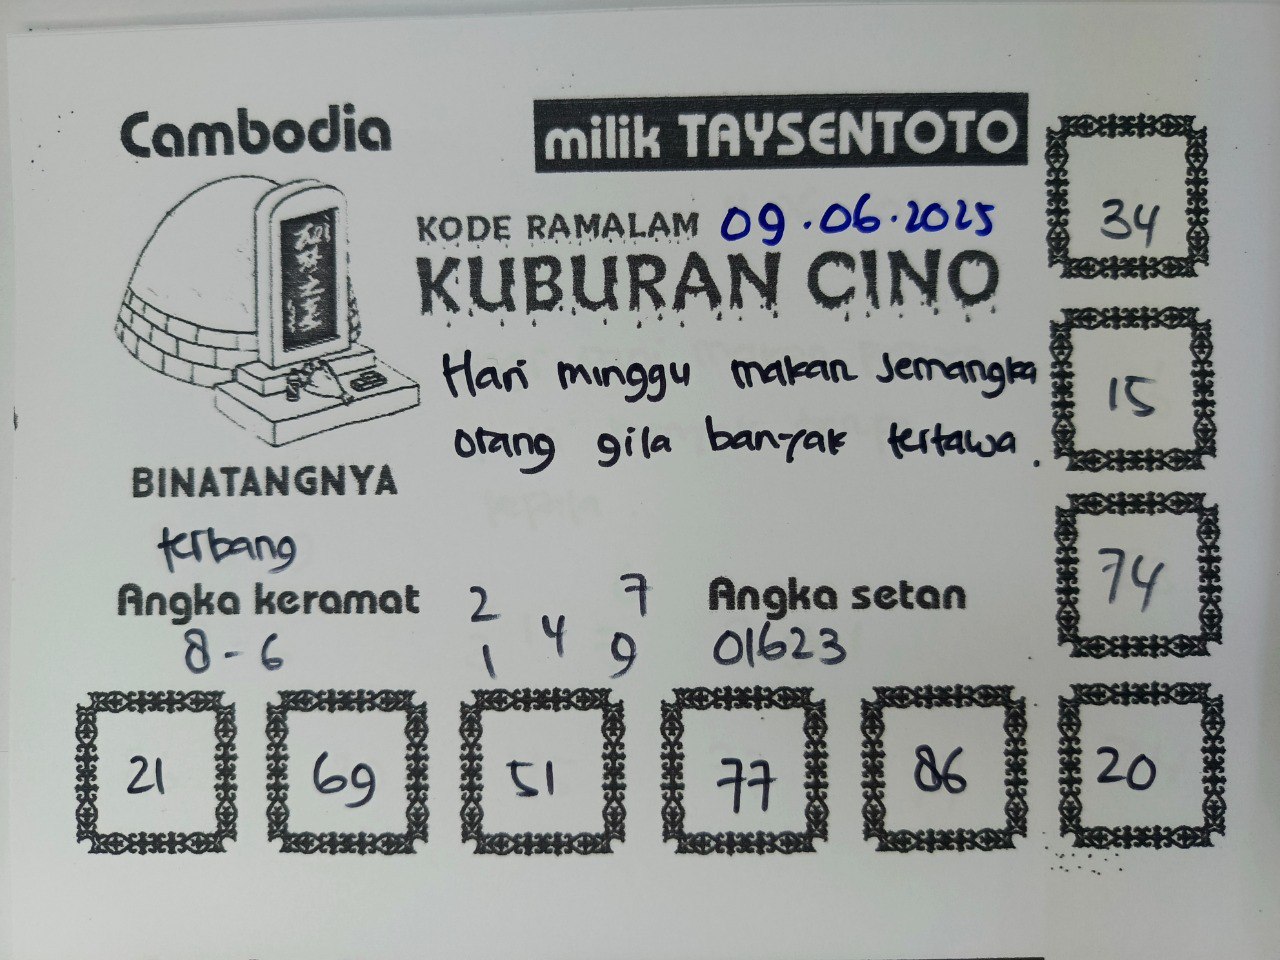 Cambodia
milik TAYSENTOTO
KODE RAMALAM 09.06.2025
KUBURAN CINO
Hari minggu makan semangka
orang gila banyak tertawa.
BINATANGNYA
terbang
Angka keramat
8-6
2 7
4
1 9
Angka setan
01623
34
15
74
21 69 51 77 86 20